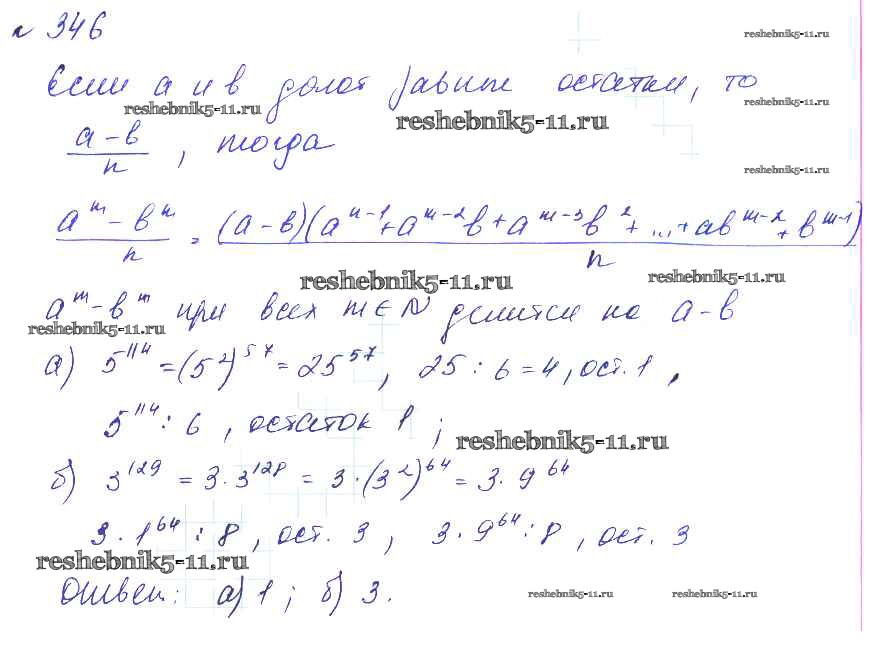 № 346
reshebnik5-11.ru
Если a и b дают равные остатки, то
reshebnik5-11.ru
reshebnik5-11.ru
reshebnik5-11.ru
(a - b)/n, тогда
reshebnik5-11.ru
(a^m - b^n)/n = (a - b)(a^{n-1} + a^{m-2}b + a^{m-3}b^2 + ... + ab^{m-2} + b^{m-1})/n
reshebnik5-11.ru
reshebnik5-11.ru
a^m - b^m при всех m ∈ N делится на a - b
reshebnik5-11.ru
а) 5^114 = (5^2)^57 = 25^57, 25 : 6 = 4, ост. 1,
5^114 : 6, остаток 1;
reshebnik5-11.ru
б) 3^129 = 3 · 3^128 = 3 · (3^2)^64 = 3 · 9^64
3 · 1^64 : 8, ост. 3, 3 · 9^64 : 8, ост. 3
reshebnik5-11.ru
Ответ: а) 1; б) 3.
reshebnik5-11.ru
reshebnik5-11.ru